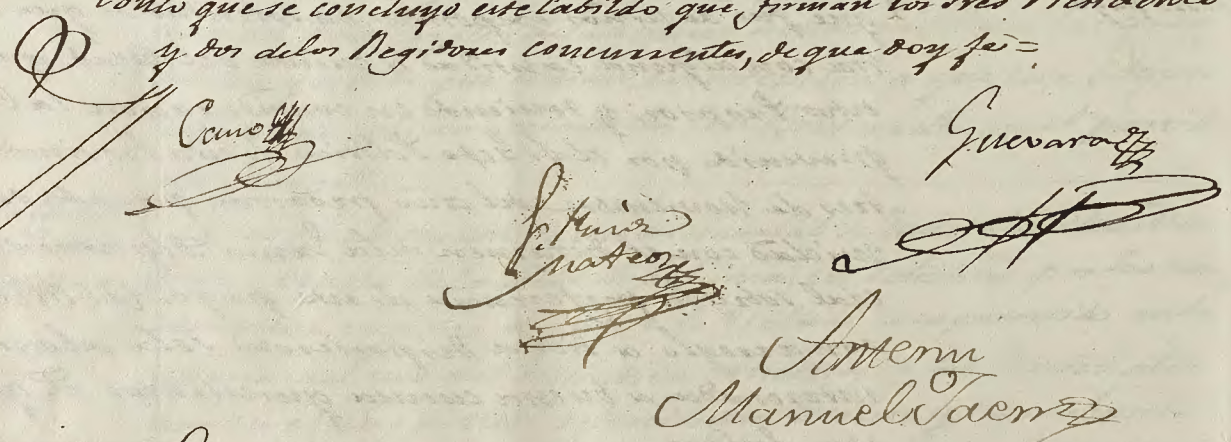 con lo que se concluyo este Cabildo que firman los Sres Presidente
y dos de los Regidores concurrentes, de que doy fe=
Cano
Guevara
Mateo
Antemi
Manuel